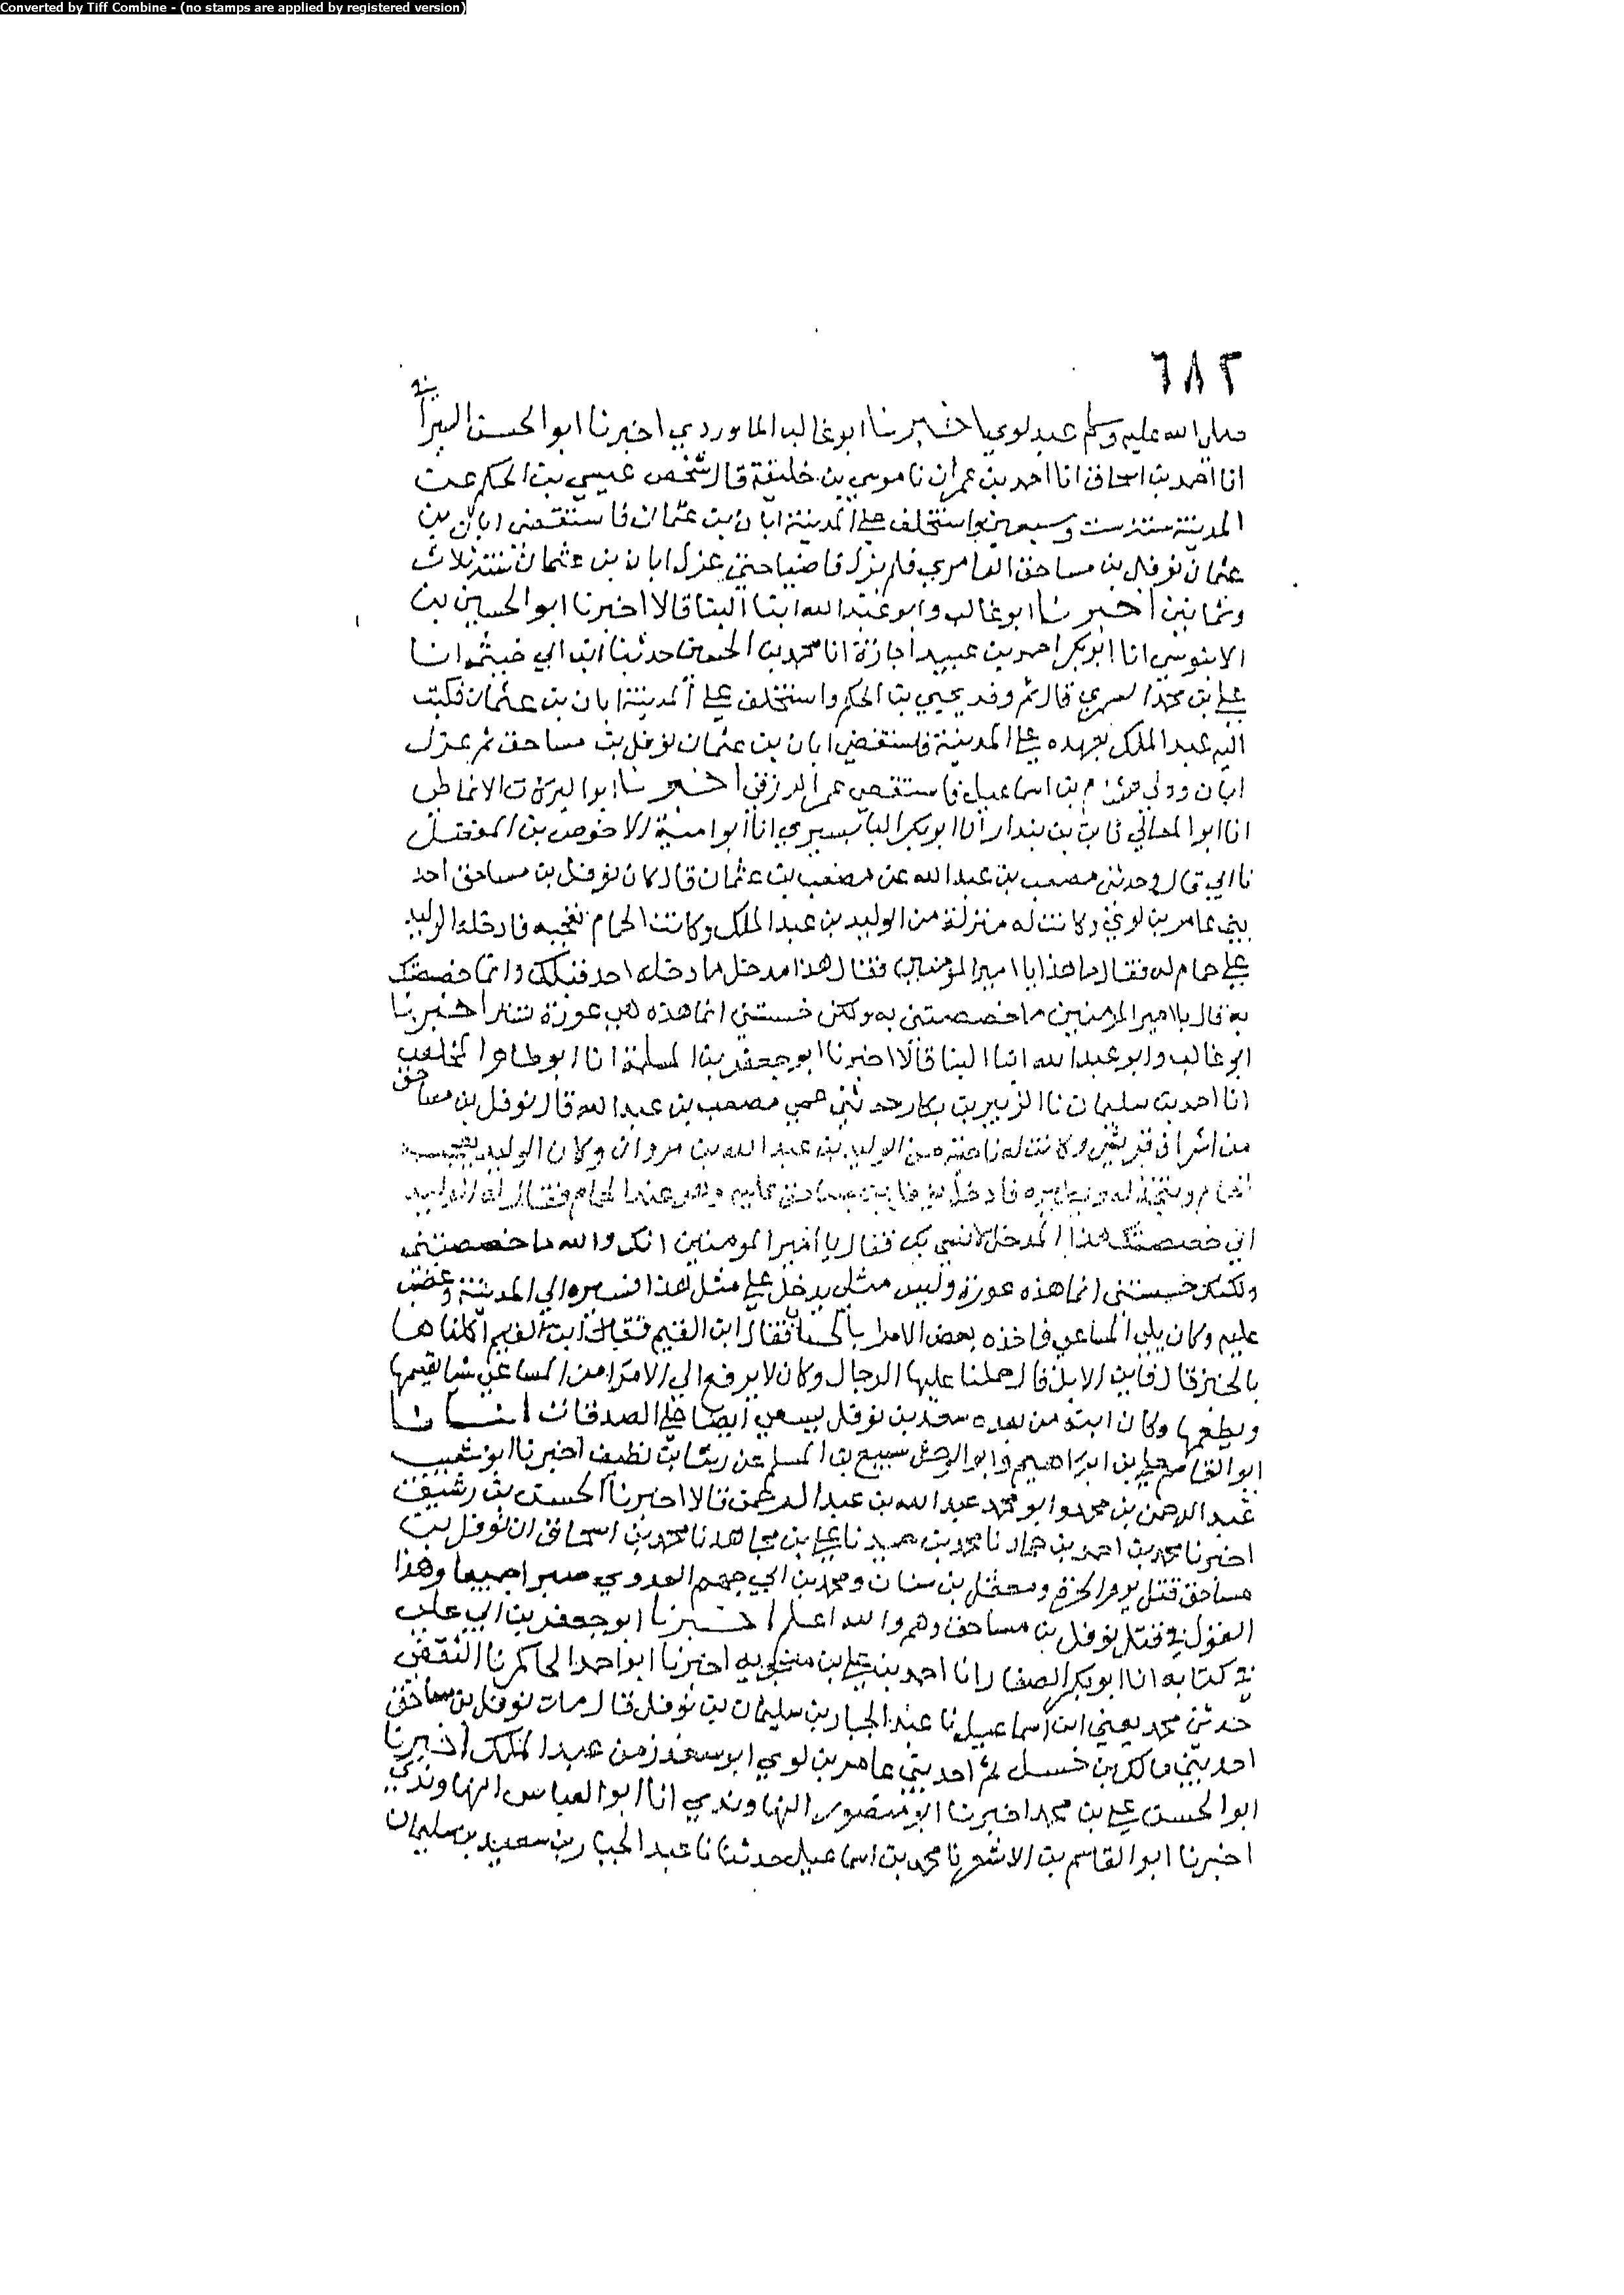 Converted by Tiff Combine - (no stamps are applied by registered version)
٦٨٢
صلى الله عليه وسلم عبد لوي اخبرنا ابو غالب الماوردي اخبرنا ابو الحسن السيرا
في
انا احمد بن اسحاق انا احمد بن عمران نا موسى بن خليفة قال شخص عيسى بن الحكم عن
المدينة سنة ست وسبعين واستخلف على المدينة ابان بن عثمان فاستقضى ابان بن
عثمان نوفل بن مساحق العامري فلم يزل قاضيا حتى عزل ابان بن عثمان سنة ثلاث
وثمانين اخبرنا ابو غالب وابو عبد الله ابنا البنا قالا اخبرنا ابو الحسين بن
الابنوسي انا ابو بكر احمد بن عبيد اجازة انا محمد بن الحسين حدثنا ابن ابي خيثمة انا
علي بن محمد قال ثم وفد يحيى بن الحكم واستخلف على المدينة ابان بن عثمان فكتب
اليه عبد الملك بعهده على المدينة فاستقضى ابان بن عثمان نوفل بن مساحق ثم عزل
ابان وولي هشام بن اسماعيل فاستقضى عمر الزرقي اخبرنا ابو البركات الانماطي
انا ابو المعالي ثابت بن بندار انا ابو بكر البابسيري انا ابو امية الاحوص بن المفضل
نا ابي قال وحدثني مصعب بن عبد الله عن مصعب بن عثمان قال كان نوفل بن مساحق احد
بني عامر بن لوي وكانت له منزلة من الوليد بن عبد الملك وكانت الحمام تعجبه فادخله الوليد
على حمام له فقال ما هذا يا امير المؤمنين فقال هذا مدخل ما دخله احد قبلك وانما خصصتك
به قال يا امير المومنين ما خصصتني به ولكن خسستني انما هذه هي عورة تستر اخبرنا
ابو غالب وابو عبد الله ابنا البنا قالا اخبرنا ابو جعفر بن المسلمة انا ابو طاهر المخلص
انا احمد بن سليمان نا الزبير بن بكار حدثني عمي مصعب بن عبد الله قال نوفل بن مساحق
من اشراف قريش وكانت له ناحية من الوليد بن عبد الله بن مروان وكان الوليد يعجبه
الحمام ويتخذ له فادخل نوفل بن مساحق عليه وهو عند الحمام فقال له الوليد
اني خصصتك هذا المدخل لانسي بك فقال يا امير المومنين انك والله ما خصصتني
ولكنك خسستني انما هذه عورة وليس مثلي يدخل على مثل هذا فسيره الى المدينة وغضب
عليه وكان يلي المساعي فاخذه بعض الامرا بالحساب فقال ابن الغنم فقال ابن الغنم اكلناها
بالخبز قال فاين الابل قال حملنا عليها الرجال وكان لا يرفع الى الامرا من المساعي شيا يقسمها
ويطعمها وكان ابنه من بعده سعد بن نوفل يسعى ايضا على الصدقات انبانا
ابو القاسم علي بن ابراهيم وابو الوحش سبيع بن المسلم عن رشا بن نظيف اخبرنا ابو شعيب
عبد الرحمن بن محمد وابو محمد عبد الله بن عبد الرحمن قالا اخبرنا الحسن بن رشيق
اخبرنا محمد بن احمد بن حماد نا محمد بن حميد نا علي بن مجاهد نا محمد بن اسحاق ان نوفل بن
مساحق قتل يوم الحرة ومعقل بن سنان ومحمد بن ابي جهم العدوي صبرا جميعا وهذا
القول في قتل نوفل بن مساحق وهم والله اعلم اخبرنا ابو جعفر بن ابي علي
في كتابه انا ابو بكر الصفار انا احمد بن علي بن منجويه اخبرنا ابو احمد الحاكم نا الثقفي
حدثني محمد يعني ابن اسماعيل نا عبد الجبار بن سليمان بن نوفل قال مات نوفل بن مساحق
احد بني مالك بن حسل ثم احد بني عامر بن لوي ابو سعد زمن عبد الملك اخبرنا
ابو الحسن علي بن محمد اخبرنا ابو منصور النهاوندي انا ابو العباس النهاوندي
اخبرنا ابو القاسم بن الاشقر نا محمد بن اسماعيل حدثنا نا عبد الجبار بن سعيد بن سليمان